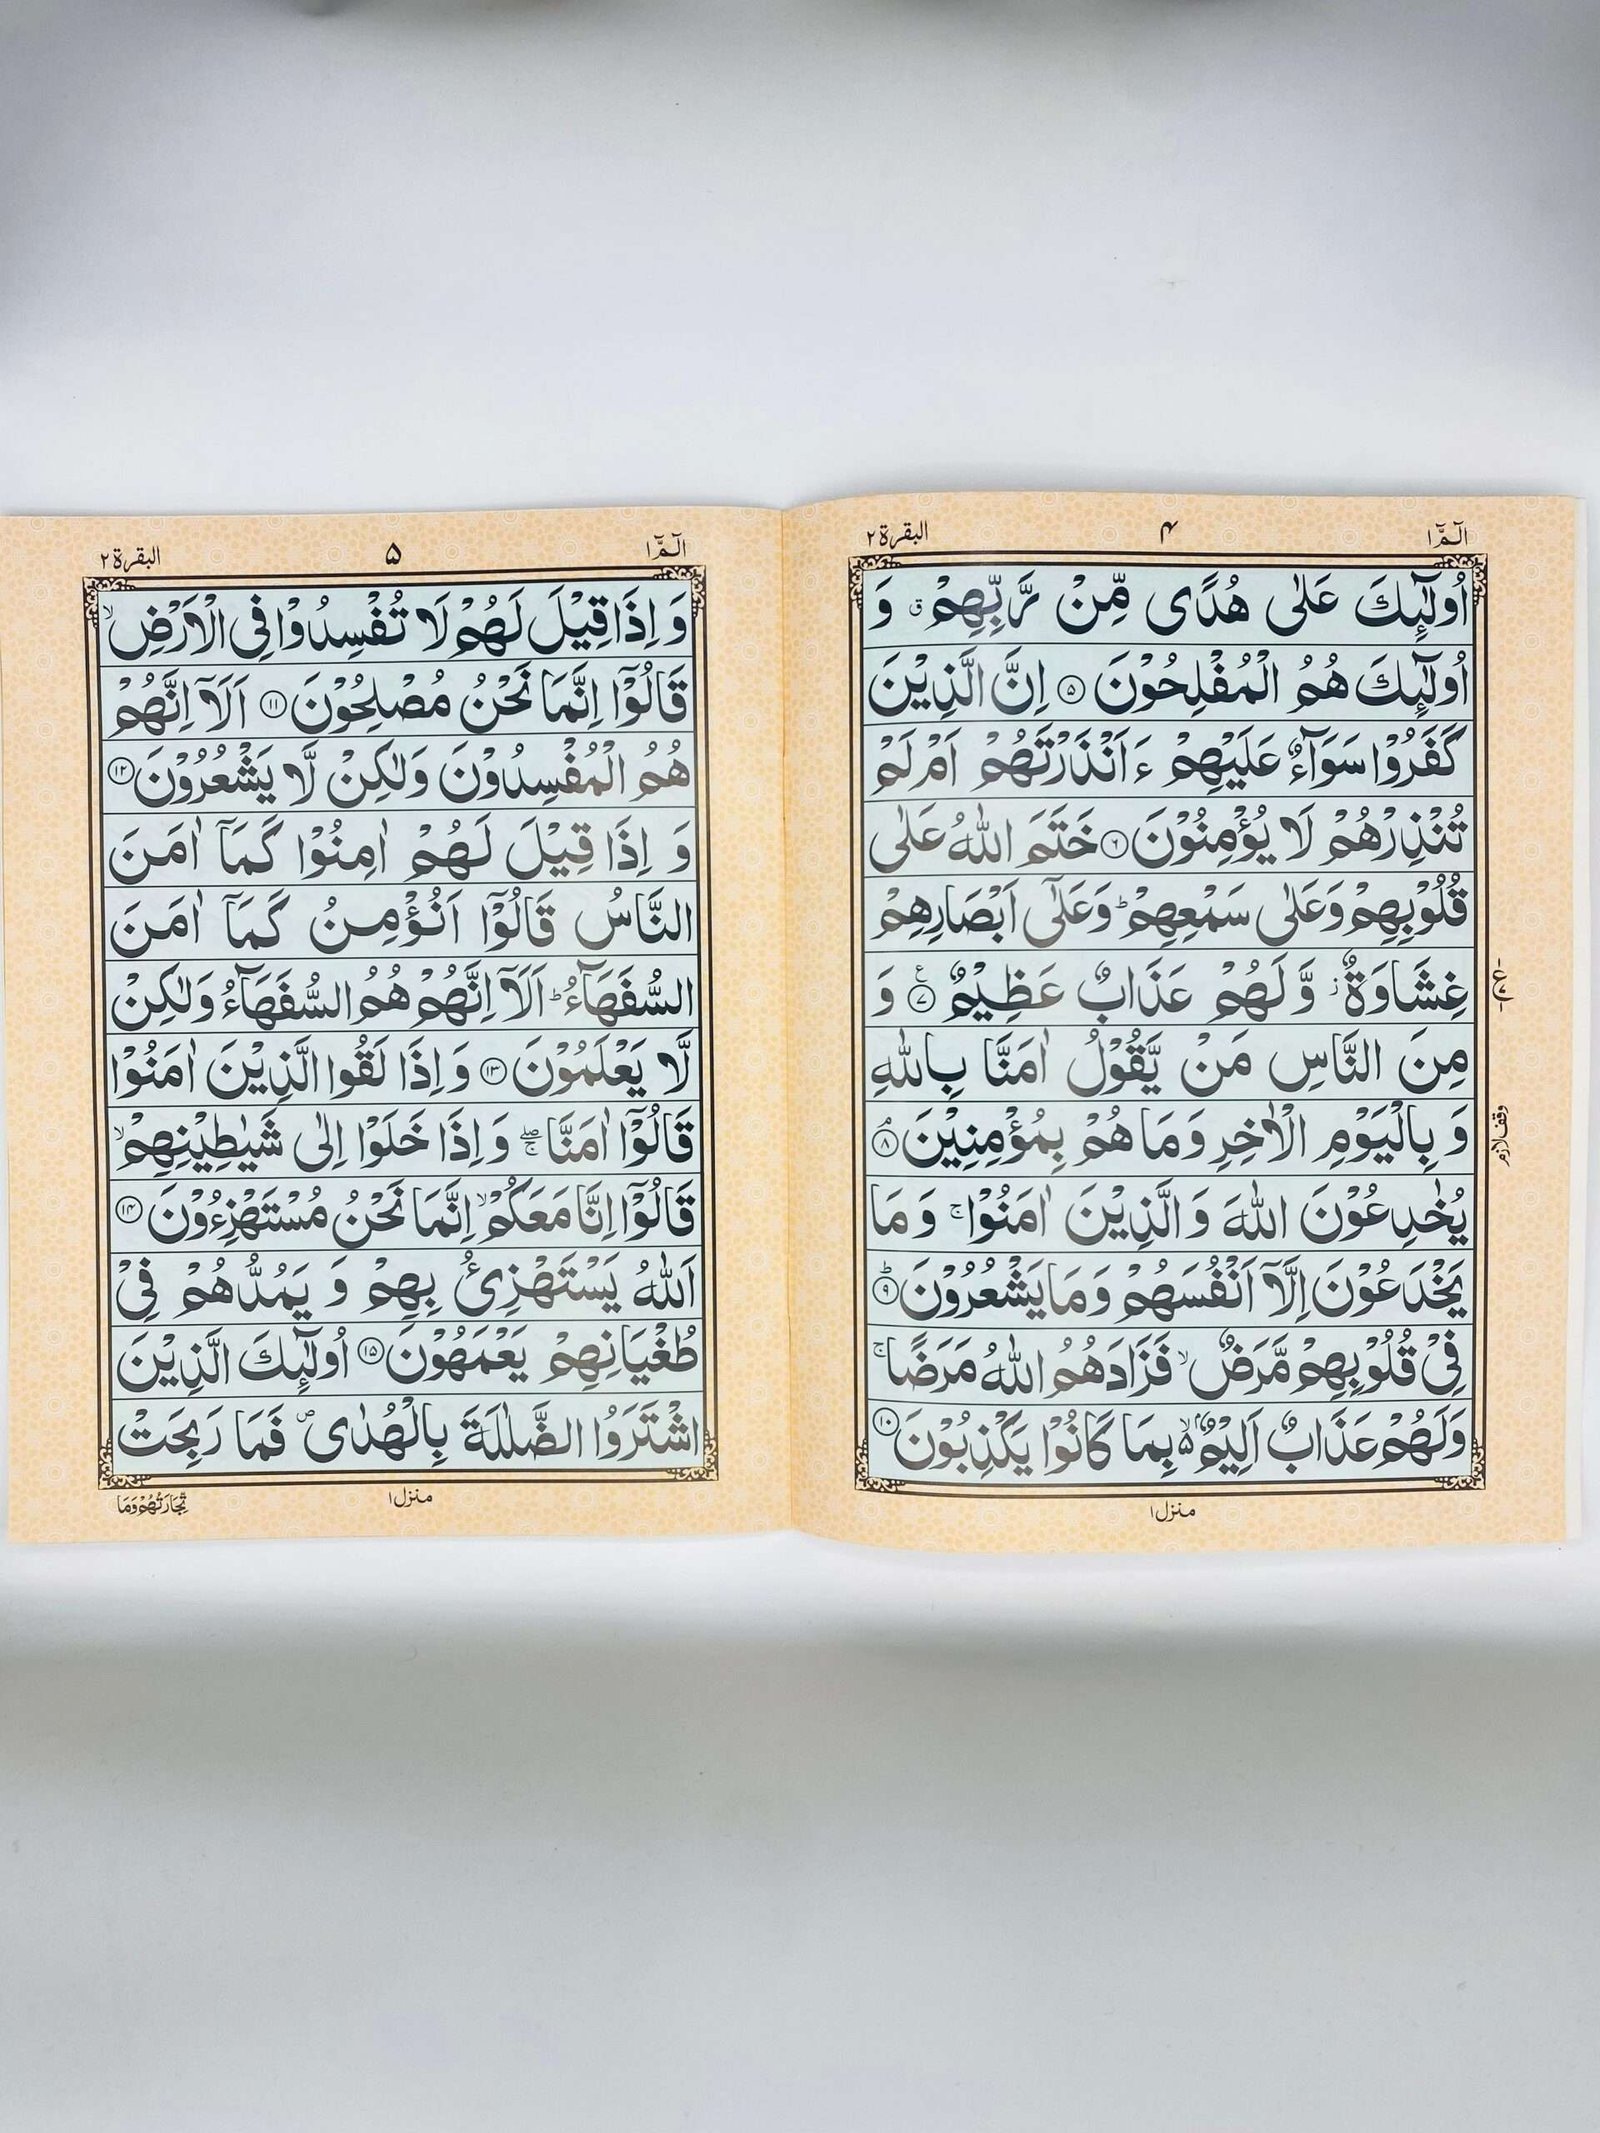 الٓمّٓ ۱
۴
البقرة ۲
اُولٰٓئِكَ عَلٰى هُدًى مِّنْ رَّبِّهِمْ ۗ وَ
اُولٰٓئِكَ هُمُ الْمُفْلِحُوْنَ ۝۵ اِنَّ الَّذِيْنَ
كَفَرُوْا سَوَآءٌ عَلَيْهِمْ ءَاَنْذَرْتَهُمْ اَمْ لَمْ
تُنْذِرْهُمْ لَا يُؤْمِنُوْنَ ۝۶ خَتَمَ اللّٰهُ عَلٰى
قُلُوْبِهِمْ وَعَلٰى سَمْعِهِمْ ؕ وَعَلٰٓى اَبْصَارِهِمْ
غِشَاوَةٌ ز وَّ لَهُمْ عَذَابٌ عَظِيْمٌ ۝۷ ع وَ
مِنَ النَّاسِ مَنْ يَّقُوْلُ اٰمَنَّا بِاللّٰهِ
وَ بِالْيَوْمِ الْاٰخِرِ وَمَا هُمْ بِمُؤْمِنِيْنَ ۝۸ م
وقف لازم
يُخٰدِعُوْنَ اللّٰهَ وَ الَّذِيْنَ اٰمَنُوْا ۚ وَ مَا
يَخْدَعُوْنَ اِلَّآ اَنْفُسَهُمْ وَ مَا يَشْعُرُوْنَ ۝۹ ؕ
فِيْ قُلُوْبِهِمْ مَّرَضٌ ۙ فَزَادَهُمُ اللّٰهُ مَرَضًا ۚ
وَلَهُمْ عَذَابٌ اَلِيْمٌ ۢ ۙ۵ بِمَا كَانُوْا يَكْذِبُوْنَ ۝۱۰
منزل ۱
الٓمّٓ ۱
۵
البقرة ۲
وَ اِذَا قِيْلَ لَهُمْ لَا تُفْسِدُوْا فِى الْاَرْضِ ۙ
قَالُوْٓا اِنَّمَا نَحْنُ مُصْلِحُوْنَ ۝۱۱ اَلَآ اِنَّهُمْ
هُمُ الْمُفْسِدُوْنَ وَلٰكِنْ لَّا يَشْعُرُوْنَ ۝۱۲
وَ اِذَا قِيْلَ لَهُمْ اٰمِنُوْا كَمَآ اٰمَنَ
النَّاسُ قَالُوْٓا اَنُؤْمِنُ كَمَآ اٰمَنَ
السُّفَهَآءُ ؕ اَلَآ اِنَّهُمْ هُمُ السُّفَهَآءُ وَلٰكِنْ
لَّا يَعْلَمُوْنَ ۝۱۳ وَ اِذَا لَقُوا الَّذِيْنَ اٰمَنُوْا
قَالُوْٓا اٰمَنَّا ۖۚ وَ اِذَا خَلَوْا اِلٰى شَيٰطِيْنِهِمْ ۙ
قَالُوْٓا اِنَّا مَعَكُمْ ۙ اِنَّمَا نَحْنُ مُسْتَهْزِءُوْنَ ۝۱۴
اَللّٰهُ يَسْتَهْزِئُ بِهِمْ وَ يَمُدُّهُمْ فِيْ
طُغْيَانِهِمْ يَعْمَهُوْنَ ۝۱۵ اُولٰٓئِكَ الَّذِيْنَ
اشْتَرَوُا الضَّلٰلَةَ بِالْهُدٰى ۪ فَمَا رَبِحَتْ
منزل ۱
تِّجَارَتُهُمْ وَمَا